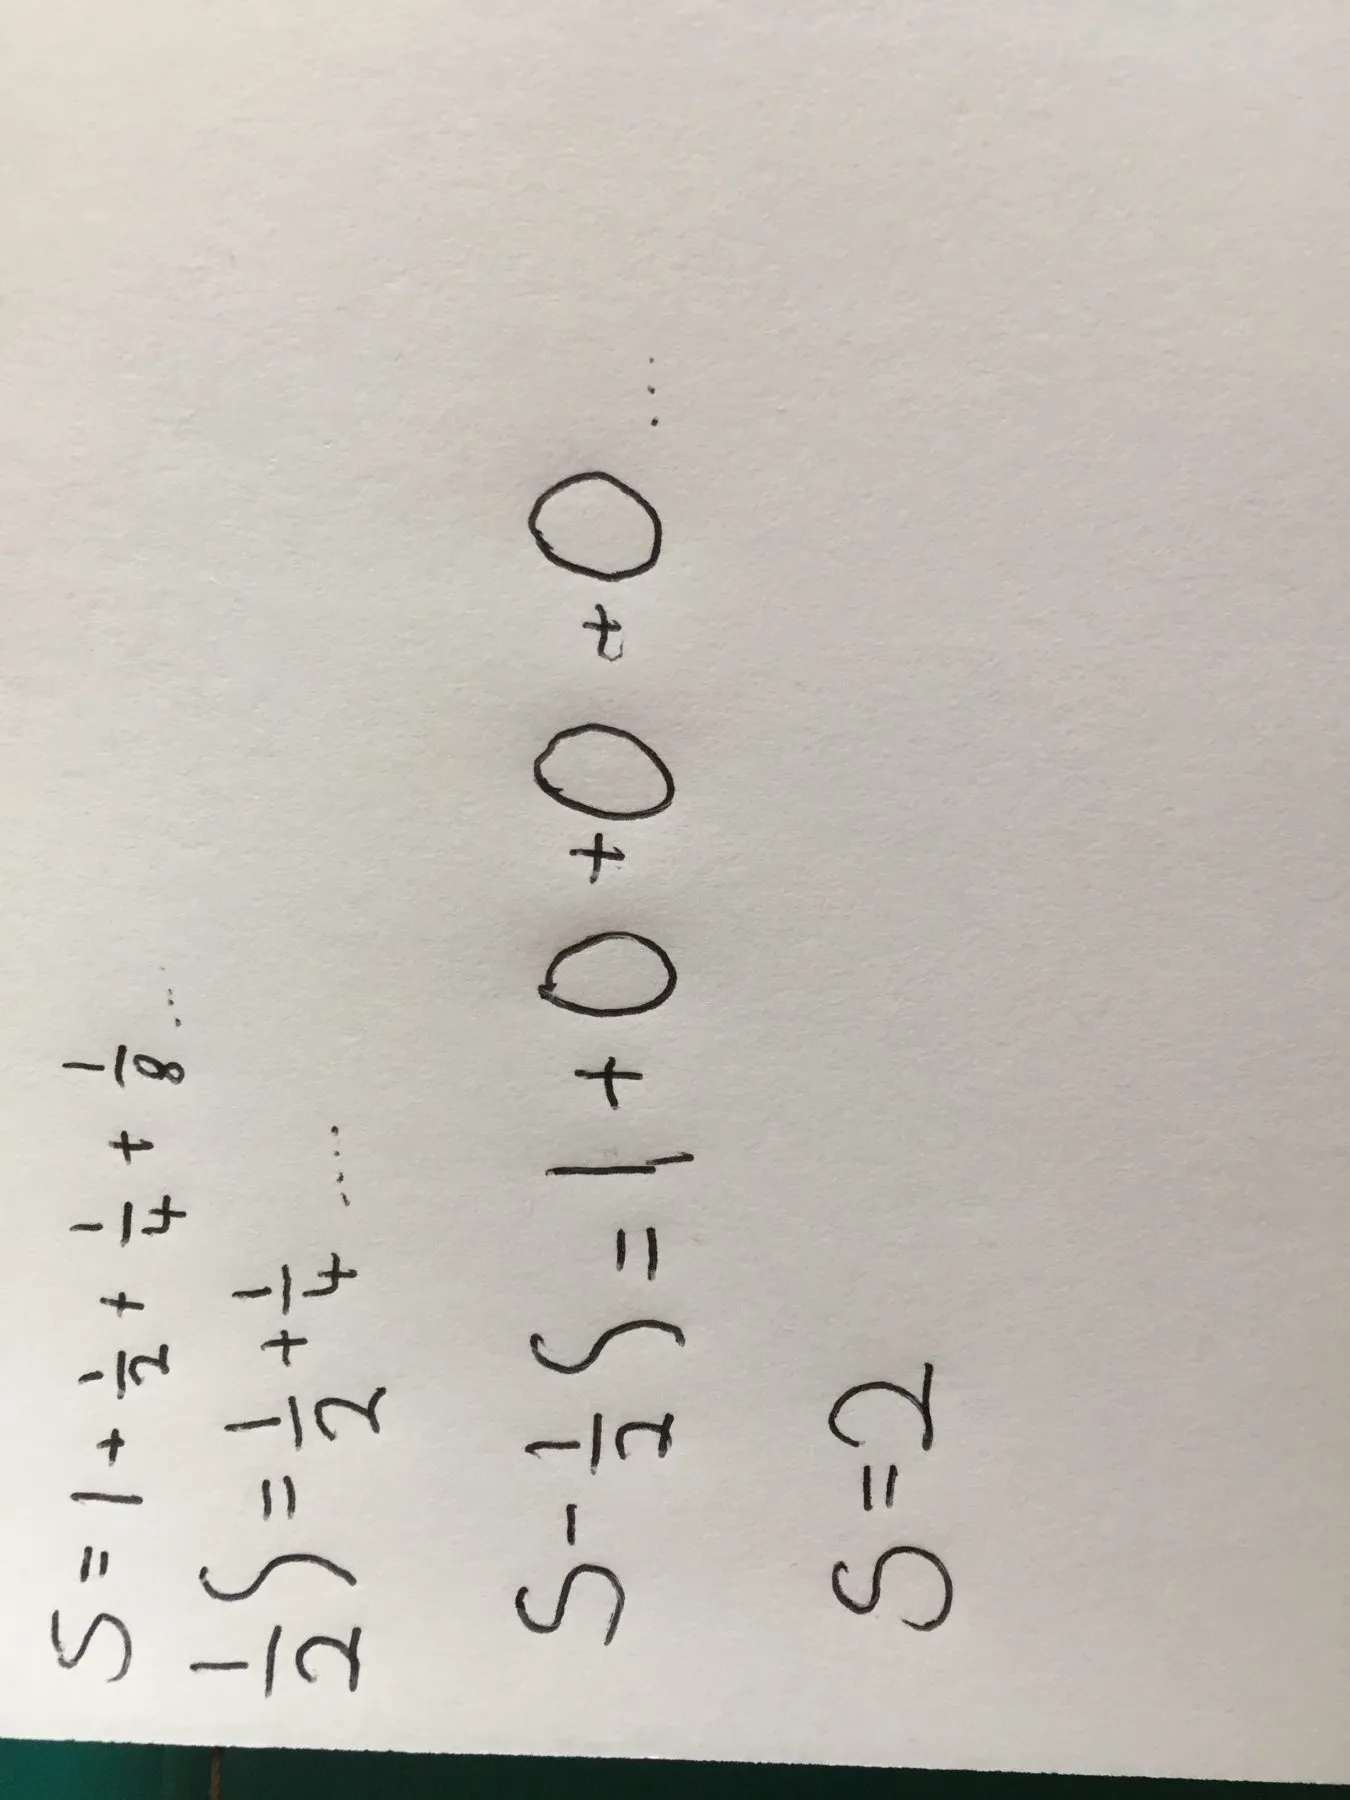 S = 1 + 1/2 + 1/4 + 1/8 ...
1/2 S = 1/2 + 1/4 ....
S - 1/2 S = 1 + 0 + 0 + 0 ...
S = 2